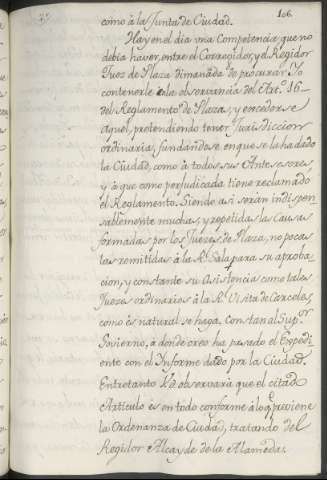 106
como à la Junta de Ciudad.
Hay en el dia una Competencia, que no
debia haver, entre el Corregidor, y el Regidor
Juez de Plaza dimanada de procurar Yo
contenerle à la observancia del Artº. 16
del Reglamentoº de Plaza, y encedorse
aquel, pretendiendo tener Jurisdiccion
ordinaria, fundandose en que se la ha dado
la Ciudad, como à todos sus Antecesores,
y à que como perjudicada tiene reclamado
el Reglamento. Siendo asi serán indispen
sablemente muchas, y repetidas las Causas
formadas por los Jueces de Plaza, no pocas
las remitidas à la Rl. Sala para su aproba-
cion, y constante su Asistencia como tales
Jueces ordinarios à la Rl. Visita de Carceles,
como és natural se haga constar al Supor.
Govierno, à donde creo ha pasado el Expedi
ente con el Informe dado por la Ciudad.
Entretanto se observará que el citado
Articulo és en todo conforme à lo q previene
la Ordenanza de Ciudad, tratando del
Regidor Alcayde de la Alameda.